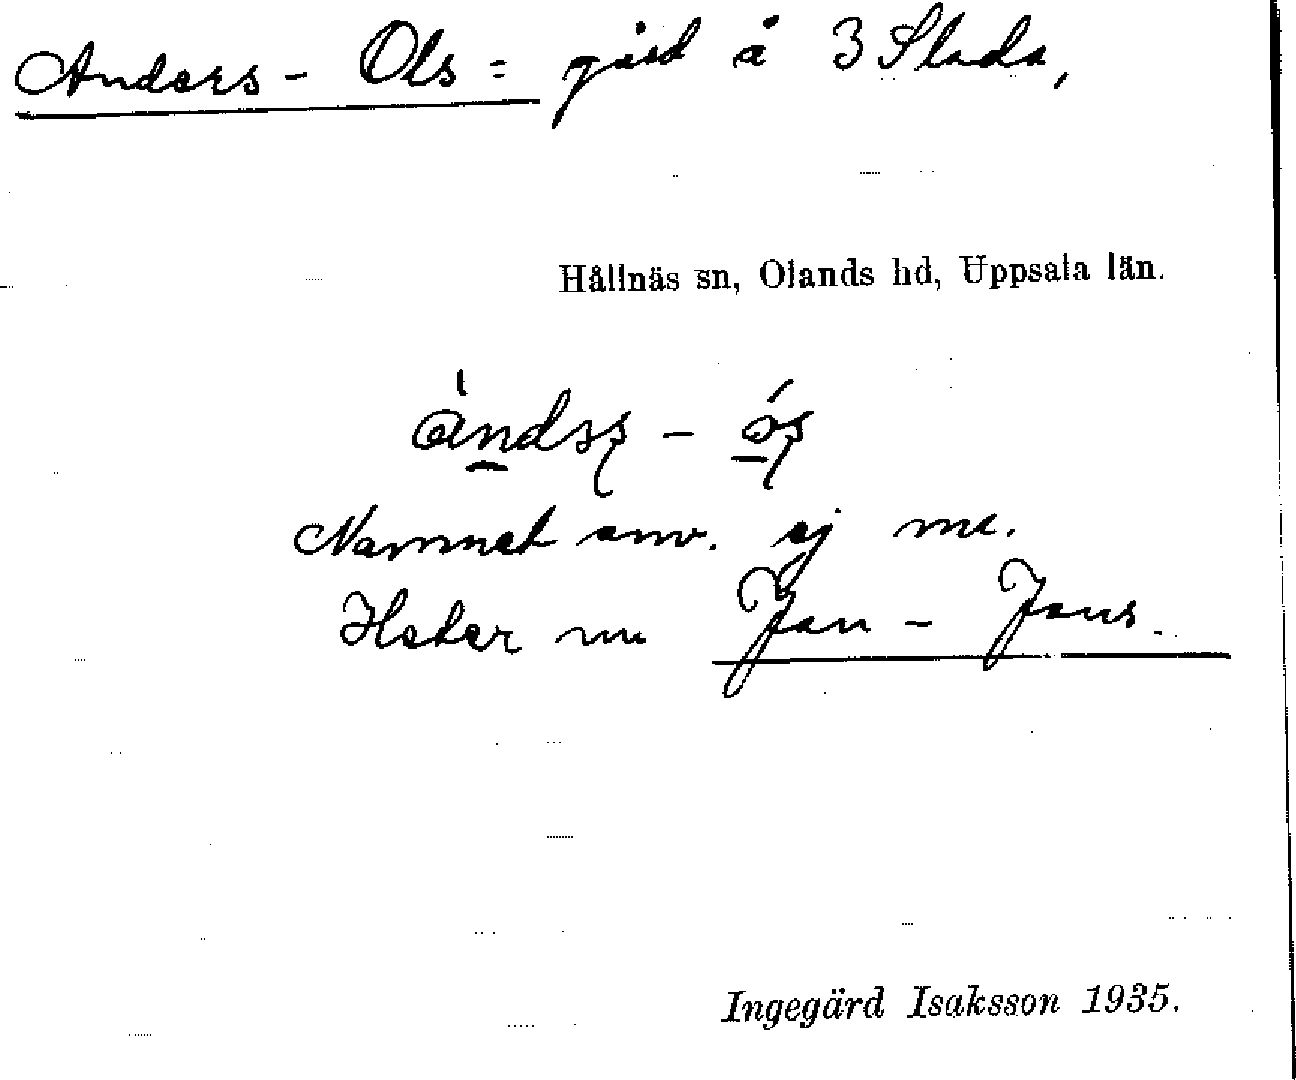 Anders - Ols = gård å 3 Slada,
Hållnäs sn, Olands hd, Uppsala län.
Namnet anv. ej mer.
Heter nu Jan - Jans.
Ingegärd Isaksson 1935.